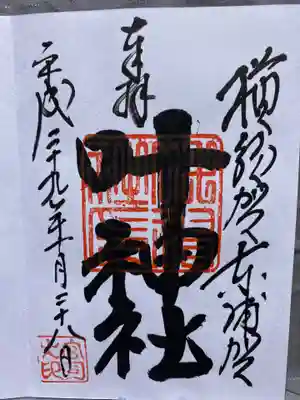 横須賀東浦賀
奉拝
叶神社
平成二十九年月二十八日